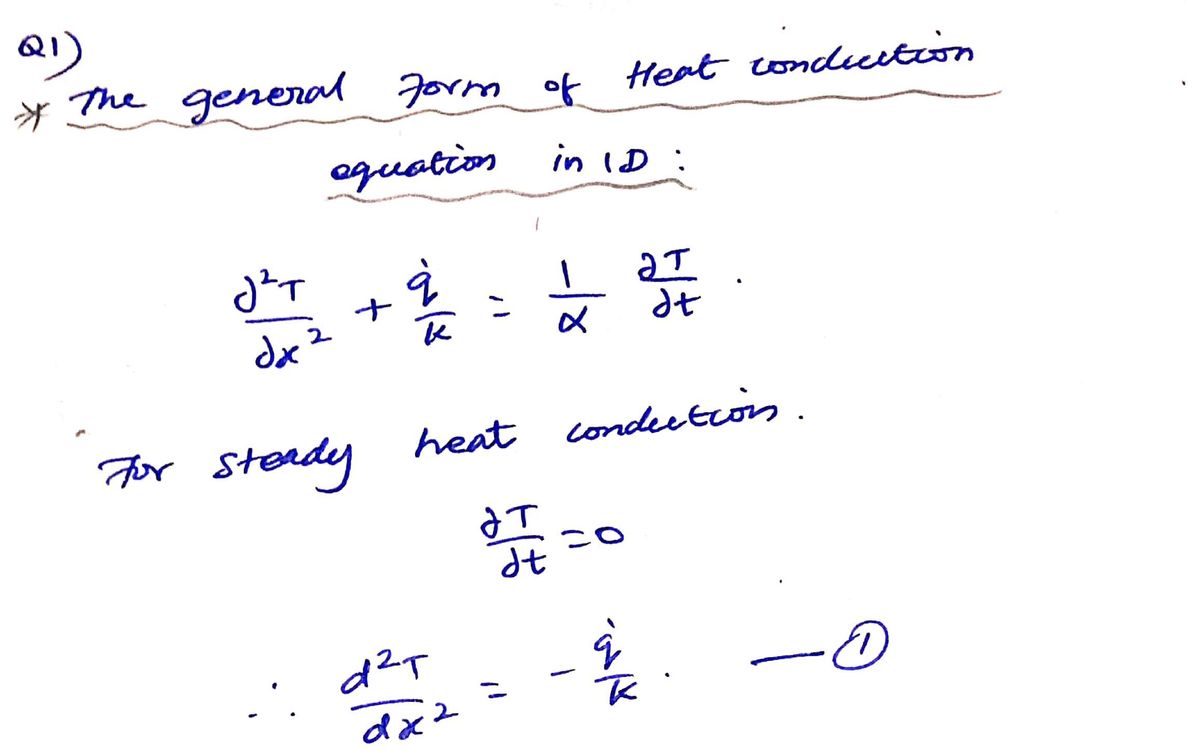 Q1)
* The general Form of Heat conduction
equation in 1D :
∂²T/∂x² + q̇/k = 1/α ∂T/∂t .
For steady heat conduction .
∂T/∂t = 0
∴ d²T/dx² = - q̇/k . — ①